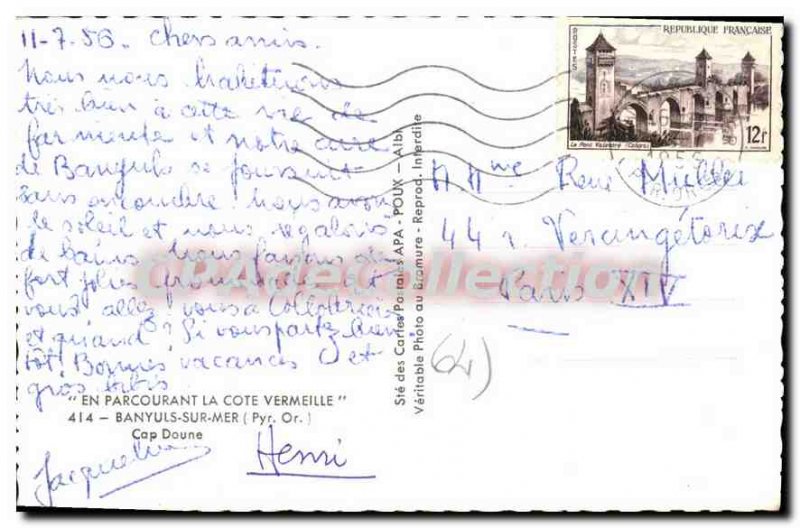 11-7.56. chers amis.
Nous nous habituons
très bien à cette vie de
farniente et notre cure
de Banyuls se poursuit
sans encombre! Nous avons
le soleil et nous régalons
de bains. Nous faisons de
fort jolies promenades et
vous! allez vous à Collobrières
et quand? Si vous partez bien-
tôt! Bonnes vacances et
gros bibis
" EN PARCOURANT LA COTE VERMEILLE "
414 — BANYULS-SUR-MER (Pyr. Or.)
Cap Doune
Jacqueline Henri
Sté des Cartes Postales APA - POUX — Albi
Véritable Photo au Bromure - Reprod. Interdite
POSTES
REPUBLIQUE FRANÇAISE
Le Pont Valentré (Cahors)
12f
M Mme René
44 r. Vercingétorix
Paris XIV
(64)
CPAdeCollection